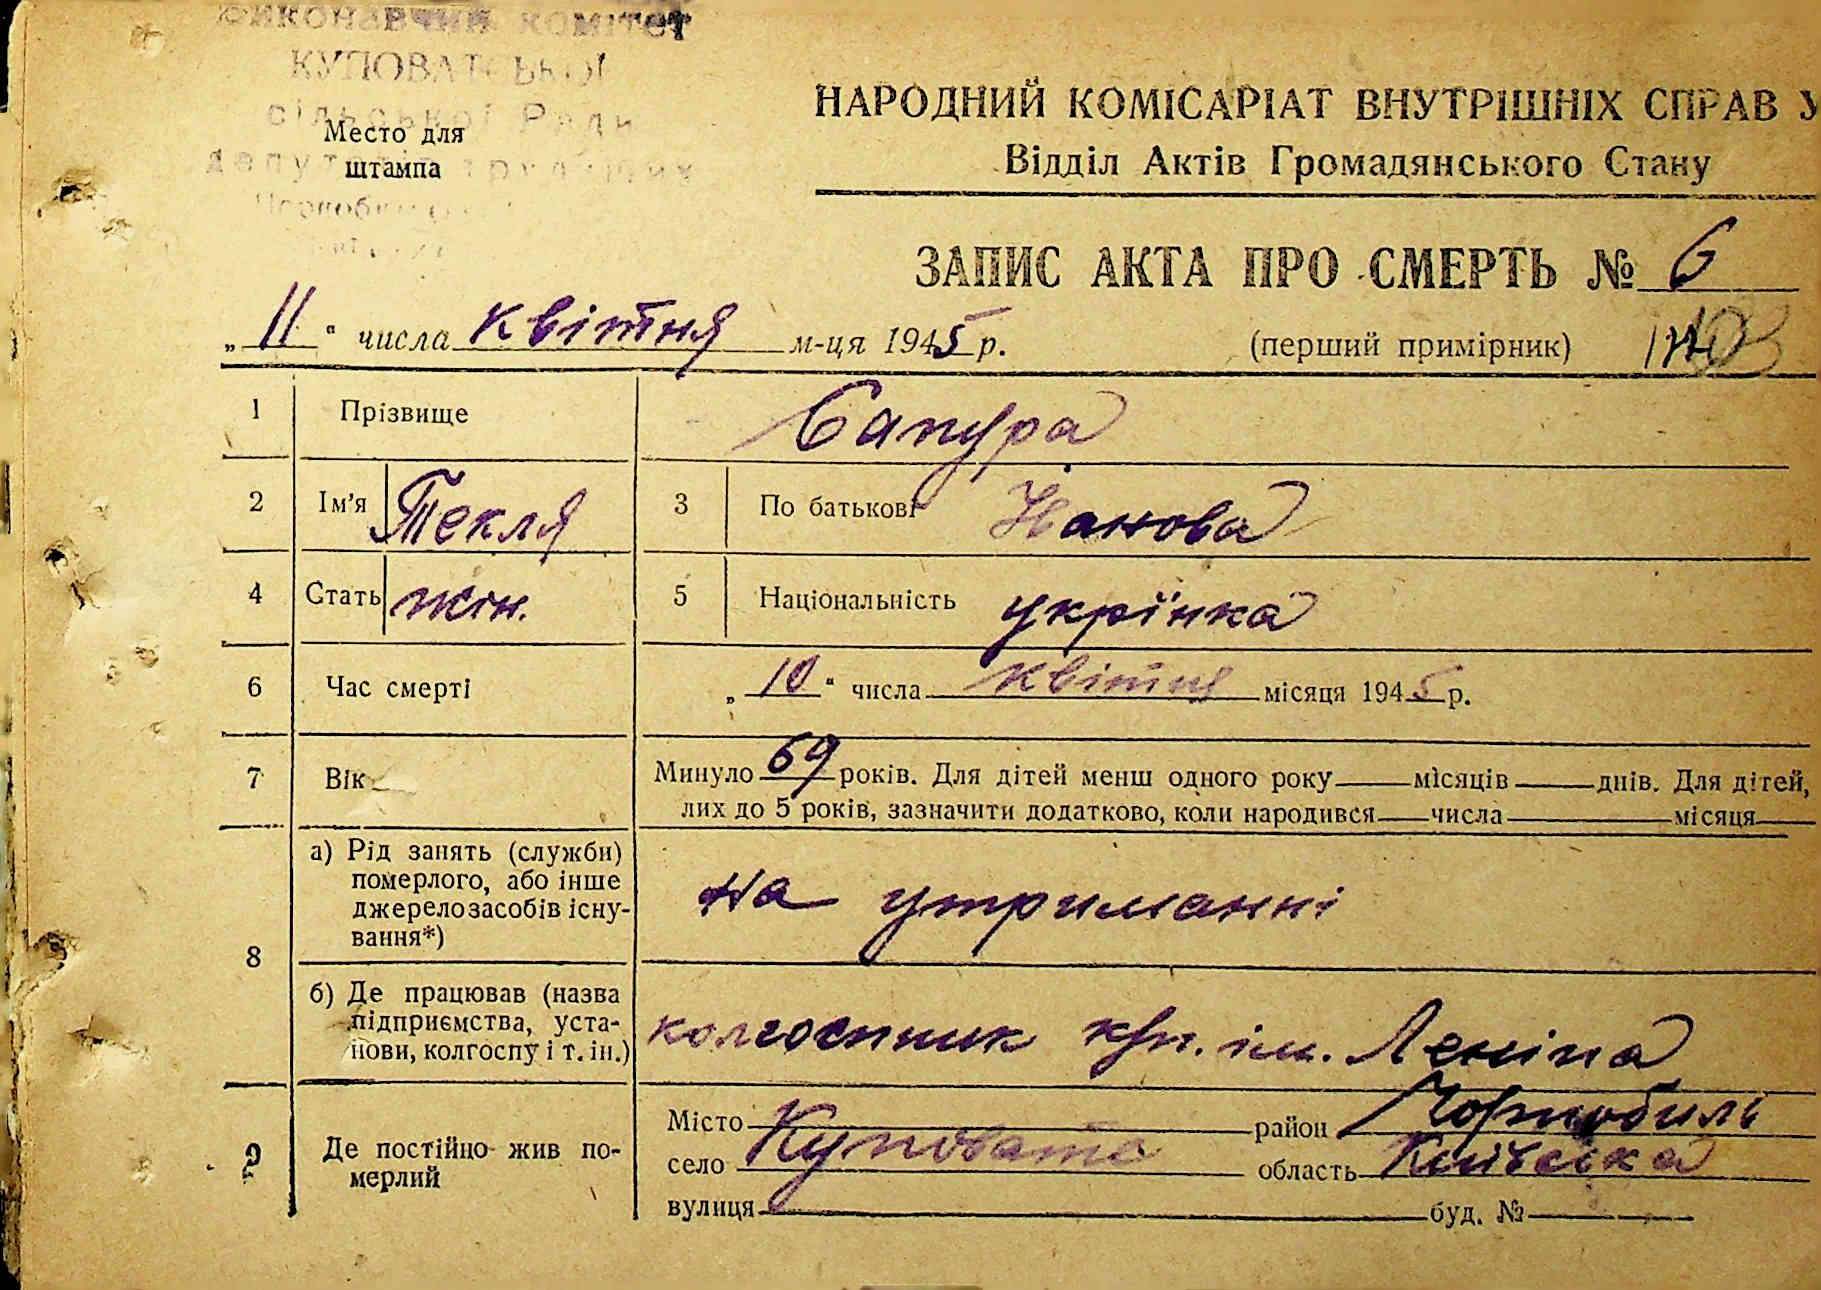 Виконавчий комітет
КУПОВАТСЬКОЇ
сільської Ради
депутатів трудящих
Место для
штампа
НАРОДНИЙ КОМІСАРІАТ ВНУТРІШНІХ СПРАВ У
Відділ Актів Громадянського Стану
ЗАПИС АКТА ПРО СМЕРТЬ № 6
„11“ числа квітня м-ця 1945 р. (перший примірник)
1 Прізвище Сапура
2 Ім'я Текля 3 По батькові Іванова
4 Стать жін. 5 Національність укрїнка
6 Час смерті „10“ числа квітня місяця 1945 р.
7 Вік Минуло 69 років. Для дітей менш одного року місяців днів. Для дітей,
лих до 5 років, зазначити додатково, коли народився числа місяця
8 а) Рід занять (служби)
померлого, або інше
джерело засобів існу-
вання*) на утриманні
б) Де працював (назва
підприємства, уста-
нови, колгоспу і т. ін.) колгоспник к/г. ім. Леніна
9 Де постійно жив по-
мерлий
Місто район Чорнобиль
село Куповате область Київська
вулиця буд. №